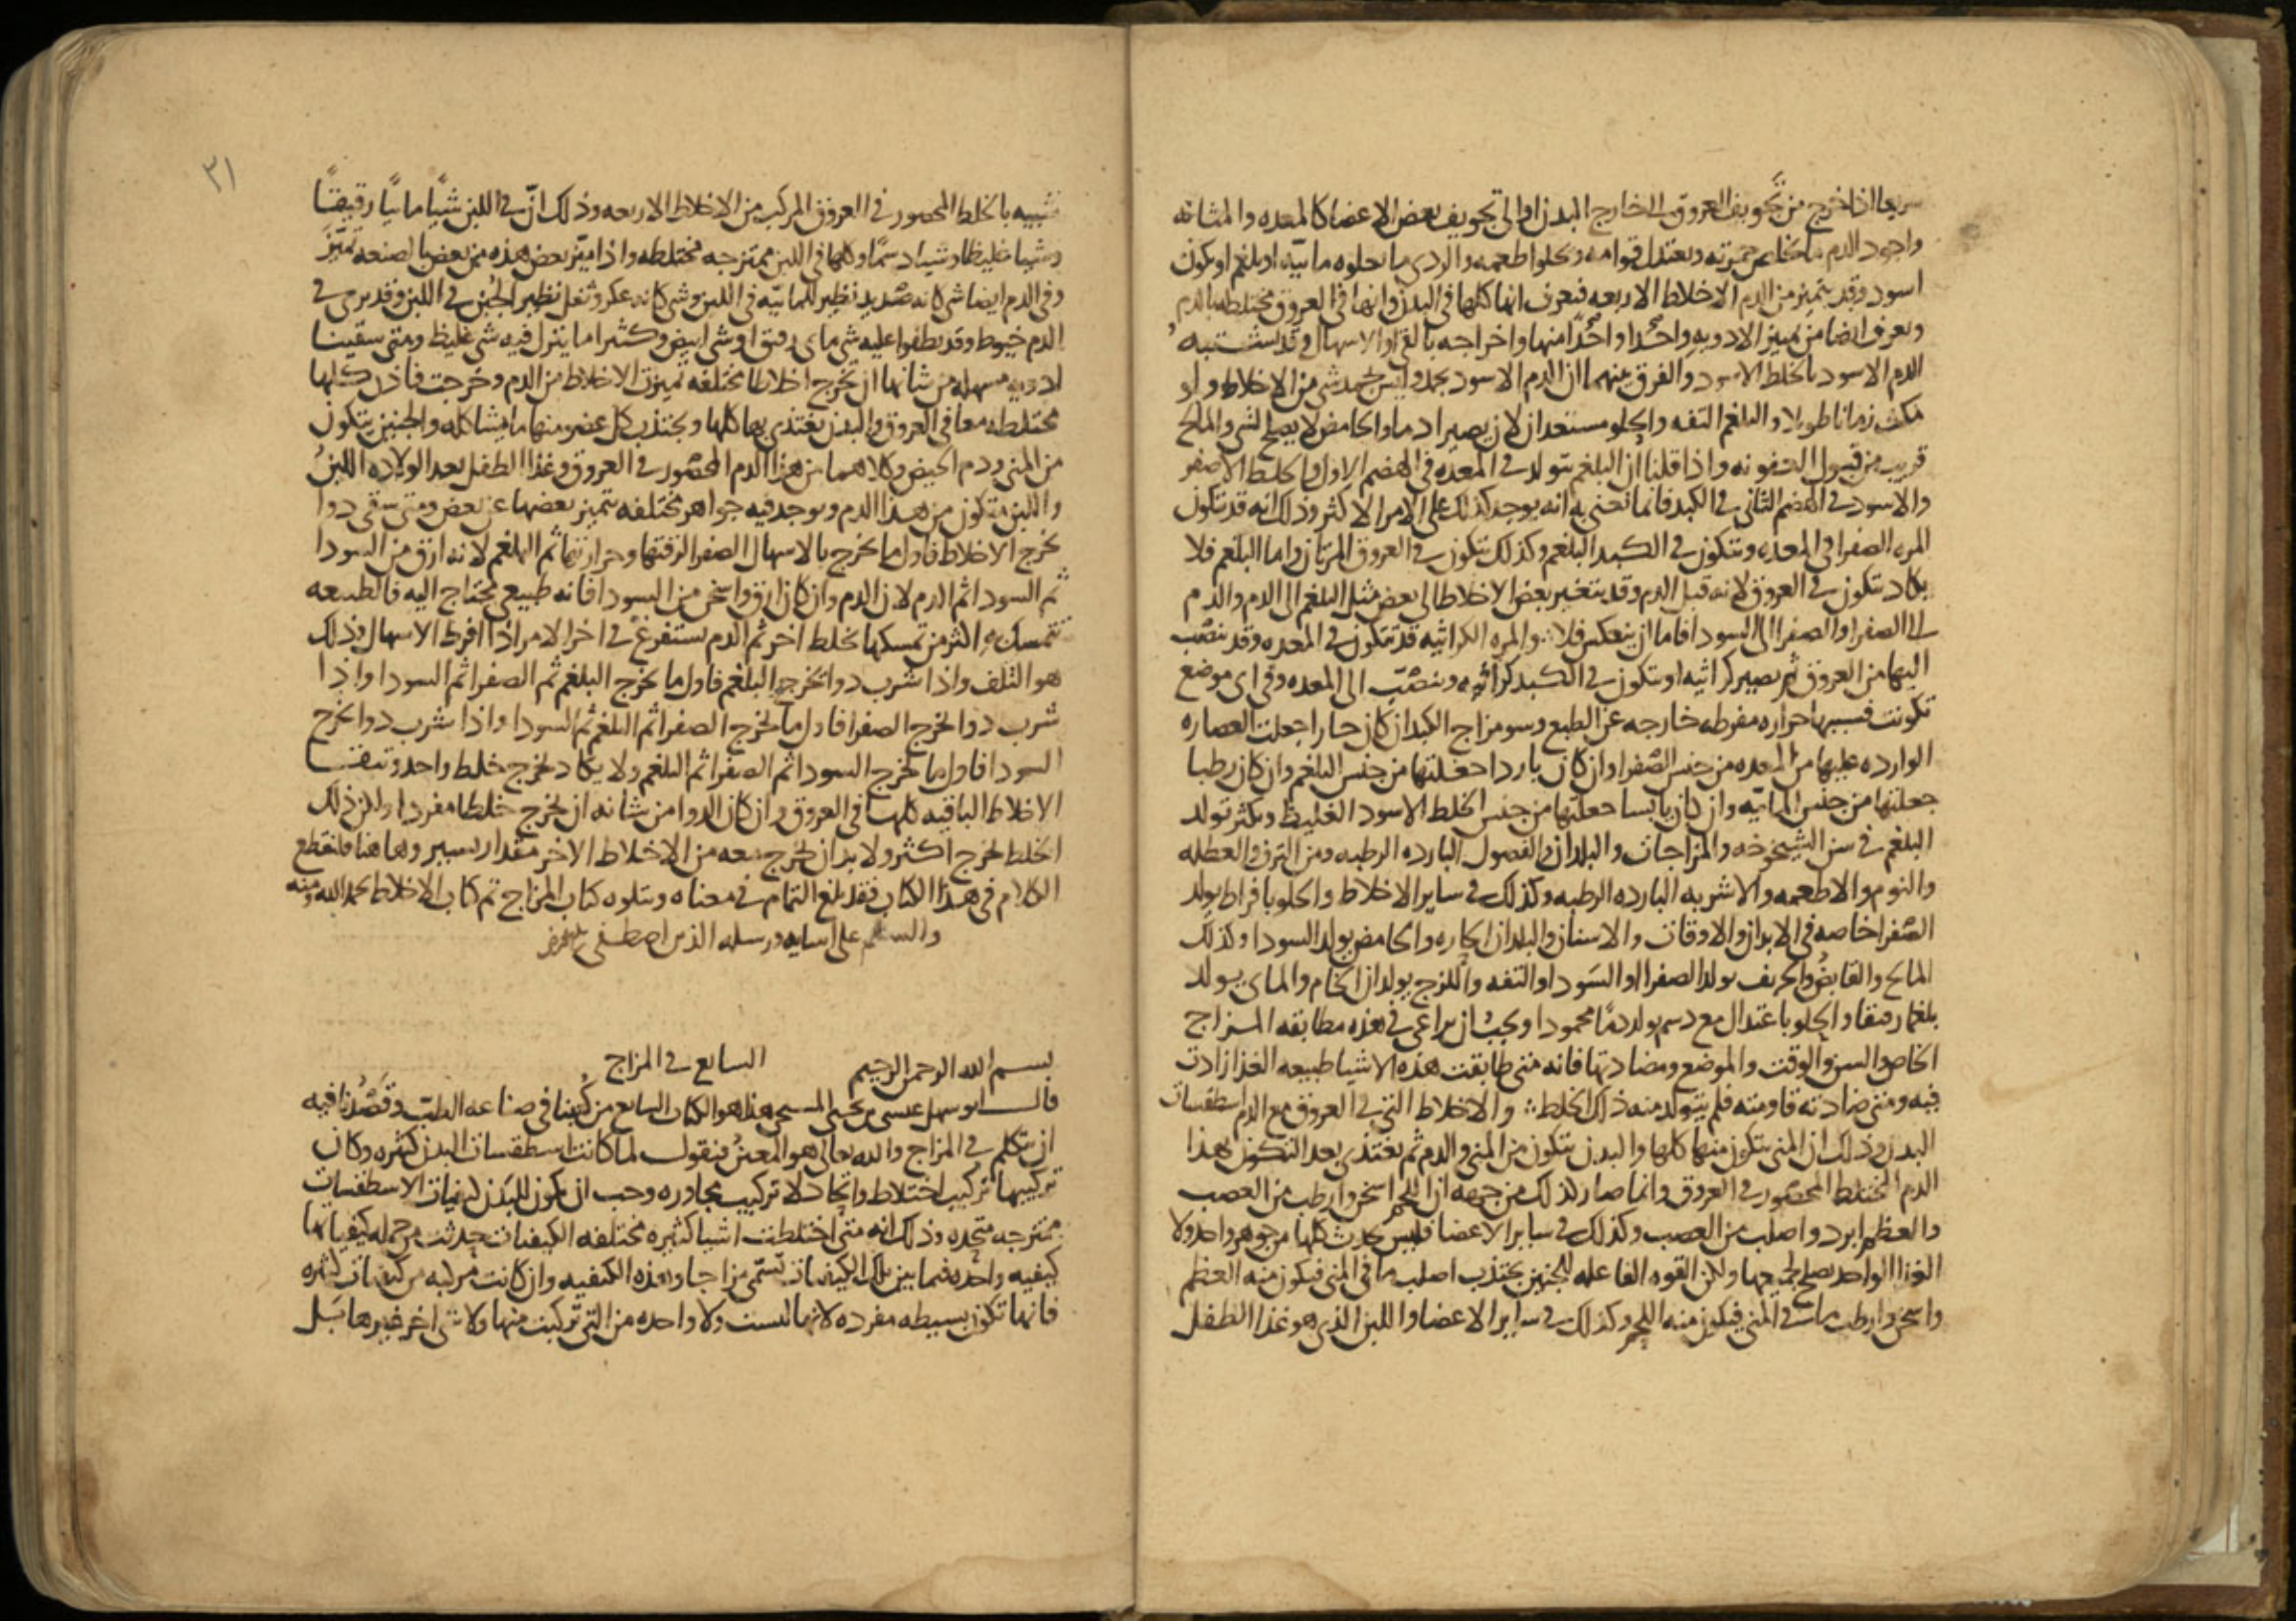 سريعا اذا خرج من تجويف العروق الى خارج البدن او الى تجويف بعض الاعضا كالمعده والمثانه
واجود الدم ما كان حمرته وبعتدل قوامه وكلوا طعمه والردى ما تحلوه مائيه او بلغم او يكون
اسود وقد يتميز من الدم الاخلاط الاربعه فيعرف انها كلها في البدن وانها في العروق مختلطه بالدم
ويعرف ايضا من تمييز الادويه واحدا واحدا منها واخراجه بالقى او الاسهال وقد يشتبه
الدم الاسود بالخلط الاسود والفرق بينهما ان الدم الاسود يجمد وليس يجمد شى من الاخلاط ولو
مكث زمانا طويلا والبلغم التفه والحلو مستعدان لان يصيرا دما والحامض لا يصلح لشى والمالح
قريب من قبول العفونه واذا قلنا ان البلغم يتولد في المعده في الهضم الاول والخلط الاصفر
والاسود في الهضم الثانى في الكبد فانما نعنى به انه يوجد كذلك على الامر الاكثر وذلك انه قد تتكون
المره الصفرا في المعده ويتكون في الكبد البلغم وكذلك تتكون في العروق المرتان واما البلغم فلا
يكاد يتكون في العروق لانه قبل الدم وقد يتغير بعض الاخلاط الى بعض مثل البلغم الى الدم والدم
الى الصفرا والصفرا الى السودا فاما ان ينعكس فلا والمره الكراثيه قد تتكون في المعده وقد تنصب
اليها من العروق ثم تصير كراثيه او تتكون في الكبد كراثيه وتنصب الى المعده وفي اى موضع
تكونت فسببها حراره مفرطه خارجه عن الطبع وسو مزاج الكبد ان كان حارا جعلت العصاره
الوارده عليها من المعده من جنس الصفرا وان كان باردا جعلتها من جنس البلغم وان كان رطبا
جعلتها من جنس المائيه وان كان يابسا جعلتها من جنس الخلط الاسود الغليظ ويكثر تولد
البلغم في سن الشيخوخه والمزاجات والبلدان والفصول البارده الرطبه ومن الترف والعطله
والنوم والاطعمه والاشربه البارده الرطبه وكذلك في ساير الاخلاط والحلو بافراط يولد
الصفرا خاصه في الابدان والاوقات والاسنان والبلدان الحاره والحامض يولد السودا وكذلك
المالح والقابض والحريف يولد الصفرا او السودا والتفه واللزج يولدان الخام والمائى يولد
بلغما رقيقا والحلو باعتدال مع دسم يولد دما محمودا ويجب ان يراعى في هذه مطابقه المزاج
الخاص والسن والوقت والموضع ومضادتها فانه متى طابقت هذه الاشيا طبيعه الغذا زادت
فيه ومتى ضادته قاومته فلم يتولد منه ذلك الخلط والاخلاط التى في العروق مع الدم اسطقسات
البدن وذلك ان المنى يتكون منها كلها والبدن يتكون من المنى والدم ثم يغتذى بعد التكون بهذا
الدم المختلط المحصور في العروق وانما صار كذلك من جهه ان اللحم اسخن وارطب من العصب
والعظم ابرد واصلب من العصب وكذلك في ساير الاعضا فليس يحدث كلها من جوهر واحد ولا
الغذا الواحد يصلح لجميعها ولكن القوه الفاعله للجنين يجتذب اصلب ما في المنى فيكون منه العظم
واسخن وارطب ما في المنى فيكون منه اللحم وكذلك في ساير الاعضا واللبن الذى هو غذا الطفل
٣١
شبيه بالخلط المحصور في العروق المركب من الاخلاط الاربعه وذلك ان في اللبن شيا مائيا رقيقا
وشيا غليظا وشيا دسما وكلها في اللبن ممتزجه مختلطه واذا ميز بعض هذه من بعض بالصنعه تميز
وفي الدم ايضا شى كانه صديد نظير للمائيه في اللبن وشى كانه عكر وثفل نظير الجبن في اللبن وقد يرى في
الدم خيوط وقد يطفوا عليه شى مائى رقيق او شى ابيض وكثيرا ما ينزل فيه شى غليظ ومتى سقينا
ادويه مسهله من شانها ان تخرج اخلاطا مختلفه تميزت الاخلاط من الدم وخرجت فاذن كلها
مختلطه معا في العروق والبدن يغتذى بها كلها ويجتذب كل عضو منها ما يشاكله والجنين يتكون
من المنى ودم الحيض وكلاهما من هذا الدم المحصور في العروق وغذا الطفل بعد الولاده اللبن
واللبن يتكون من هذا الدم ويوجد فيه جواهر مختلفه يتميز بعضها عن بعض ومتى سقى دوا
يخرج الاخلاط فاول ما يخرج بالاسهال الصفرا لرقتها وحرارتها ثم البلغم لانه ارق من السودا
ثم السودا ثم الدم لان الدم وان كان ارق واسخن من السودا فانه طبيعى يحتاج اليه فالطبيعه
تتمسك به اكثر من تمسكها بخلط اخر ثم الدم يستفرغ في اخر الامر اذا افرط الاسهال وذلك
هو التلف واذا شرب دوا يخرج البلغم فاول ما يخرج البلغم ثم الصفرا ثم السودا واذا
شرب دوا يخرج الصفرا فاول ما يخرج الصفرا ثم البلغم ثم السودا واذا شرب دوا يخرج
السودا فاول ما يخرج السودا ثم الصفرا ثم البلغم ولا يكاد يخرج خلط واحد وتبقى
الاخلاط الباقيه كلها في العروق وان كان الدوا من شانه ان يخرج خلطا مفردا ولكن ذلك
الخلط يخرج اكثر ولا بد ان يخرج معه من الاخلاط الاخر مقدار يسير وهاهنا فلنقطع
الكلام في هذا الكتاب فقد بلغ التمام في معناه ويتلوه كتاب المزاج تم كتاب الاخلاط بحمد الله ومنه
والسلم على انبيايه ورسله الذين اصطفى
بسم الله الرحمن الرحيم السابع في المزاج
قال ابو سهل عيسى بن يحيى المسيحى هذا هو الكتاب السابع من كتبنا في صناعه الطب وقصدنا فيه
ان نتكلم في المزاج والله تعالى هو المعين فنقول لما كانت اسطقسات البدن كثيره وكان
تركيبها تركيب اختلاط واتحاد لا تركيب مجاوره وجب ان تكون للبدن كيفيات الاسطقسات
ممتزجه متحده وذلك انه متى اختلطت اشيا كثيره مختلفه الكيفيات حدثت من جمله كيفياتها
كيفيه واحده فيما بين تلك الكيفيات تسمى مزاجا وهذه الكيفيه وان كانت مركبه من كيفيات كثيره
فانها تكون بسيطه مفرده لانها ليست ولا واحده من التى تركبت منها ولا شى اخر غيرها بل